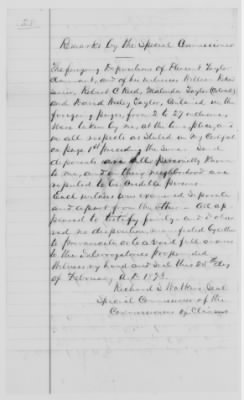 Remarks by the Special Commissioner
The foregoing Depositions of Pleasant Taylor
claimant, and of his witnesses William
Robert C. Reed, Malinda Taylor (Colored)
and David Taylor, Contained in the
foregoing pages, from 2 to 27 inclusive,
were taken by me, at the time, place, & in
in all respects as stated in my Caption
on page 1st preceding the same. Said
deponents are all personally known
to me, and in their neighborhood are
reputed to be Credible persons.
Each witness was examined separate
and apart from the other. All ap-
peared to testify fairly, and I observed
no disposition manifested by either
to prevaricate or to avoid full answers
to the Interrogatories propounded
Witness my hand and seal this 25th day
of February A.D. 1873.
Richard S. Watkins Seal
Special Commissioner of the
Commissioners of Claims